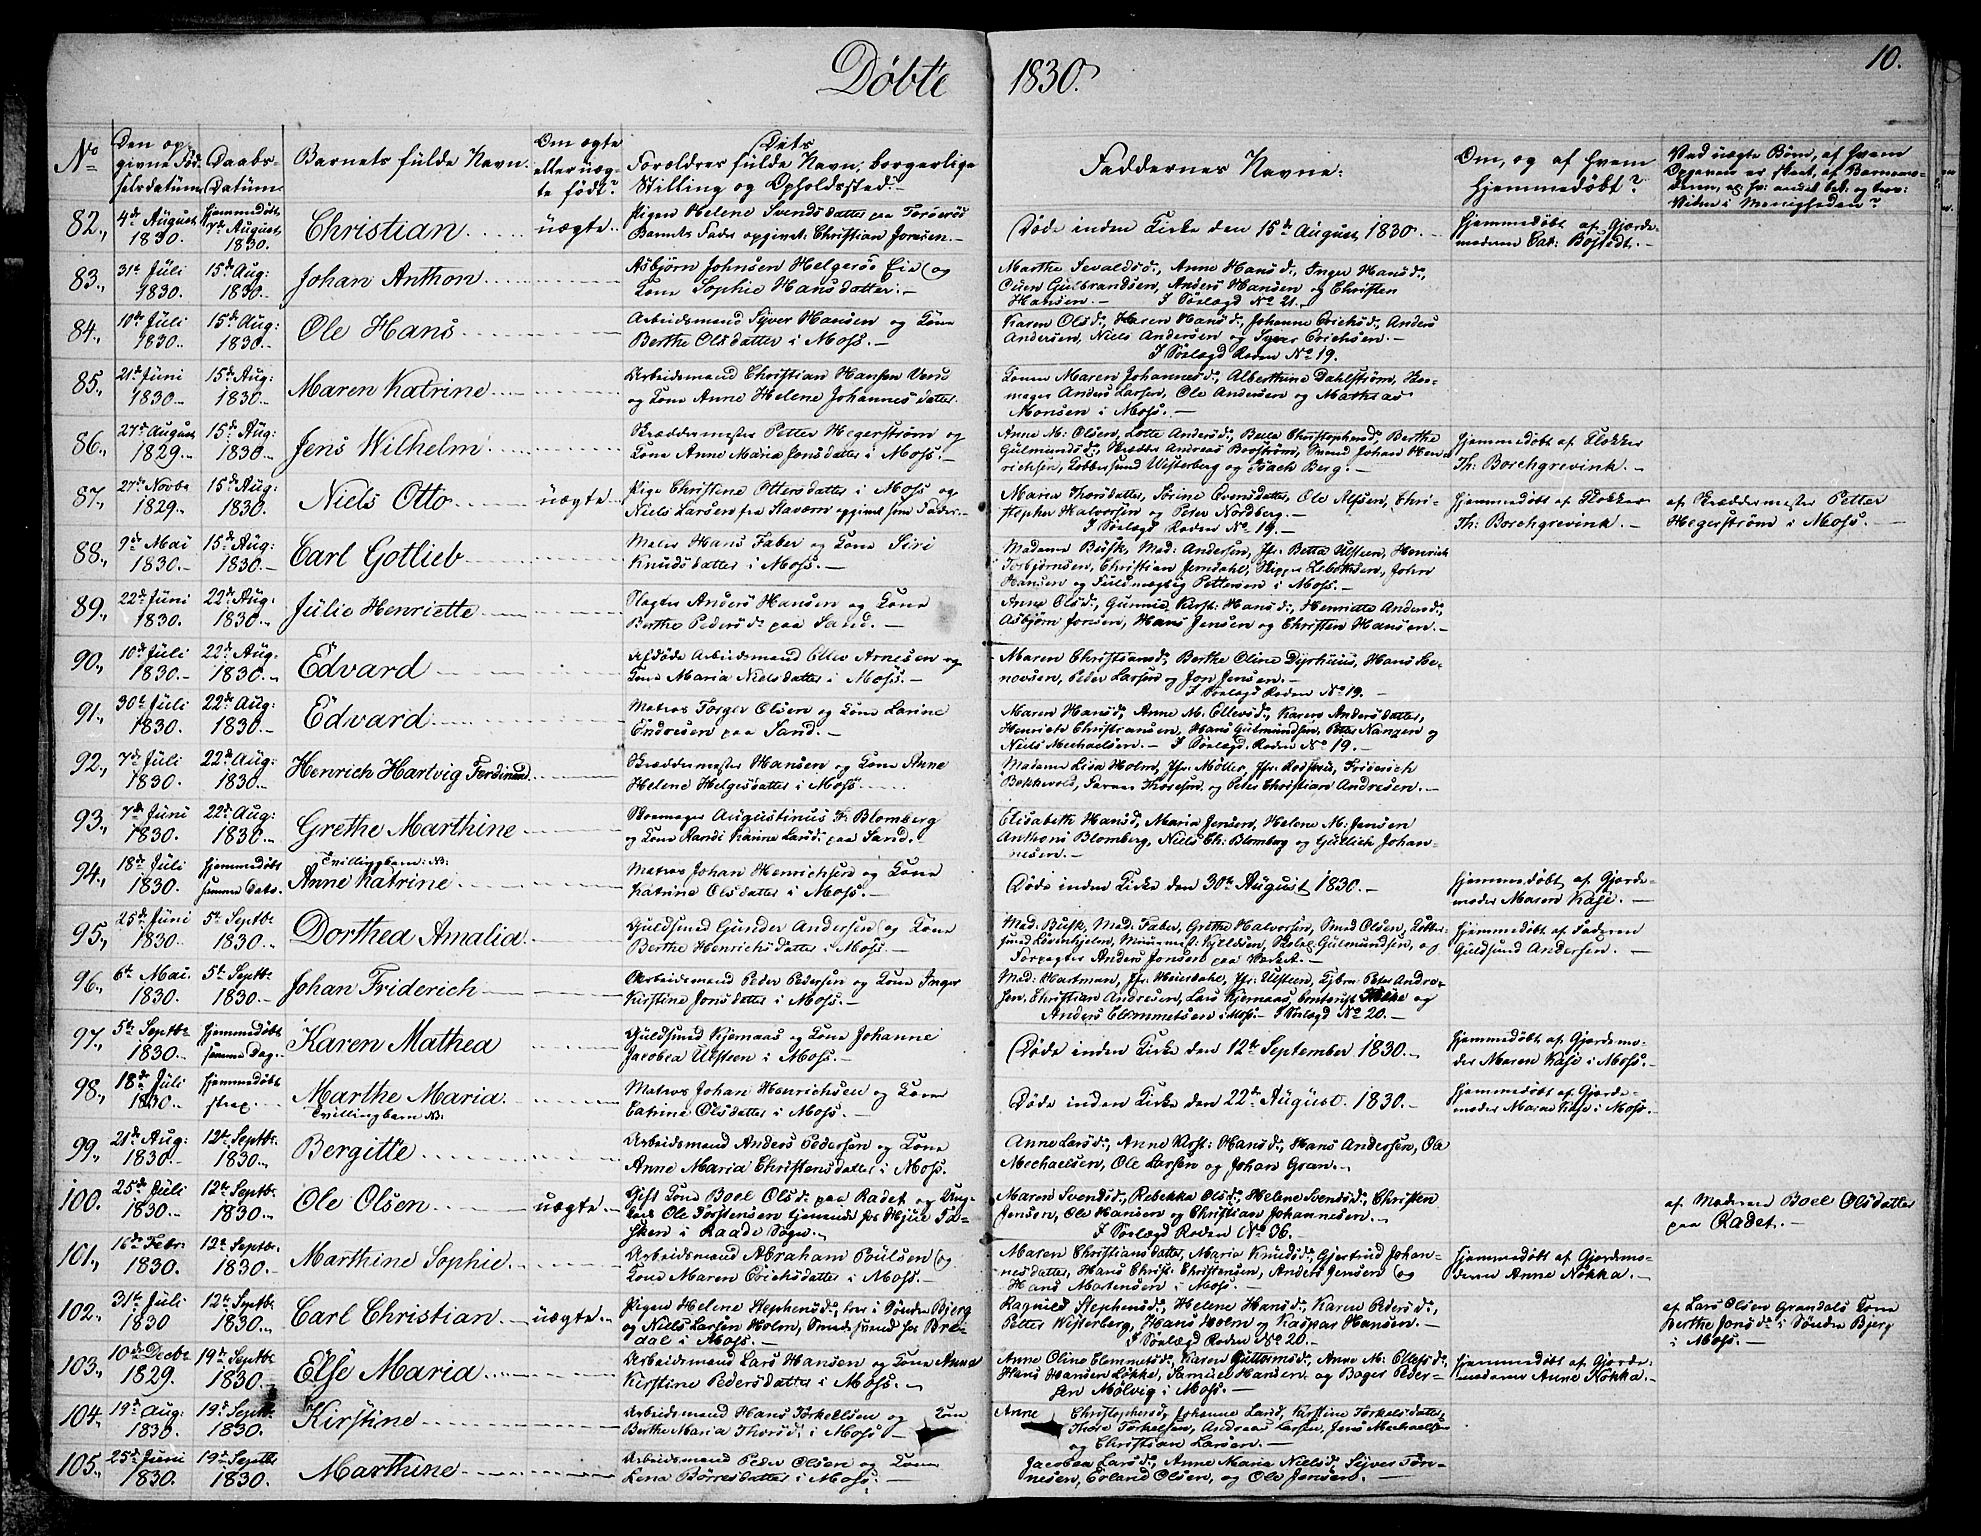 Døbte 1830.
10.
No
Den op-
givne Fød-
selsdatum
Daabs-
Datum
Barnets fulde Navn.
Om ægte
eller uæg-
te født?
Dets
Forældres fulde Navn, borgerlige
Stilling og Opholdssted.
Faddernes Navne:
Om, og af hvem
hjemmedøbt?
82., 4de August 1830. hjemmedøbt August 1830. Christian uægte
Pigen Helene Svendsdatter paa
Barnets Fader opgivet: Christian Jonsen.
Døde inden Kirke den 15de August 1830.
hjemmedøbt af Gjorde-
moderen Cat:
83., 31te Juli 1830. 15de Aug: 1830. Johan Anthon
Asbjørn Johnsen Helgerøe Eie og
Kone Sophie Hansdatter.
Marthe Sevaldsd:, Anne Hansd:, Inger Hansd:,
Gulbrandsen, Anders Hansen og Christen
Hansen. No 21.
84., 10de Juli 1830. 15de Aug: 1830. Ole Hans
Arbeidsmand Syver Hansen og Kone
Berthe Olsdatter i Moss.
Karen Olsd:, Karen Hansd:, Johanne Erichsd:, Anders
Andersen, Niels Andersen og Syver Erichsen.
No 19.
85., 21de Juni 1830. 15de Aug: 1830. Maren Katrine
Arbeidsmand Christian Hansen
og Kone Anne Helene Johannesdatter
Konen Maren Johannesd:, Alberthine Dahlstrøm, Skoe-
mager Anders Larsen, Ole Andersen og Mathias
Monsen i Moss.
86., 27de August 1829. 15de Aug: 1830. Jens Wilhelm
Skræddermester Petter Hegerstrøm og
Kone Anne Maria Jonsdatter i Moss.
Anne M: Olsen, Lotte Andersd:, Christophersd:, Berthe
Gulmundsd:, Andreas Johan Hen-
richsen, Kobbersmed Westerberg og Isack Berg.
hjemmedøbt af Klokker
Th: Borchgrevink.
87., 27de Novbr 1829. 15de Aug: 1830. Niels Otto uægte
Pige Christine Ottersdatter i Moss og
Niels Larsen fra Stavern opgivet som Fader.
Maria Thorsdatter, Sørine Evensdatter, Ole Alfsen, Chri-
stopher Halvorsen og Peter Nordberg.
Roden No 19.
hjemmedøbt af Klokker
Th: Borchgrevink.
af Skræddermester Petter
Hegerstrøm i Moss.
88., 9de Mai 1830. 15de Aug: 1830. Carl Gotlieb
Maler Hans Faber og Kone Siri
Knudsdatter i Moss.
Madame Busk, Mad: Andersen, Jfr: Betta Ulsteen, Henrich
Torbjørnsen, Christian Jerndahl, John
Hansen og Fuldmægtig Pettersen i Moss.
89., 22de Juni 1830. 22de Aug: 1830. Julie Henriette
Slagter Anders Hansen og Kone
Berthe Pedersd: paa Sand.
Anne Olsd:, Kirst: Hansd:, Henriette Andersd:,
Asbjørn Jonsen, Hans Jensen og Christen Hansen.
90., 10de Juli 1830. 22de Aug: 1830. Edvard
Afdøde Arbeidsmand Ellev Arnesen og
Kone Maria Nielsdatter i Moss.
Maren Christiansd:, Berthe Oline Dyrhuus, Hans
Peder Larsen og Jon Jensen.
Roden No 19.
91., 30te Juli 1830. 22de Aug: 1830. Edvard
Matros Torger Olsen og Kone Larine
Endresen paa Sand.
Maren Hansd:, Anne M: Ellevsd:, Karen Andersdatter,
Henrich Christiansen, Hans Gulmundsen, og
Niels Mechaelsen. Roden No 19.
92., 7de Juli 1830. 22de Aug: 1830. Henrich Hartvig Ferdinand
Skræddermester Hansen og Kone Anne
Helene Helgesdatter i Moss.
Madame Lisa Holm, Jfr: Møller, Friderich
Thoresen og Peter Christian Andresen.
93., 7de Juni 1830. 22de Aug: 1830. Grethe Marthine
Skoemager Augustinus F: Blomberg
og Kone Randi Karine Larsd: paa Sand.
Elisabeth Hansd:, Maria Jensen, Helene M: Jensen
Anthoni Blomberg, Niels Ch: Blomberg og Gullich Johan-
nesen.
94., 18de Juli 1830. hjemmedøbt samme Dato. Tvillingbarn: NB: Anne Katrine
Matros Johan Henrichsen og Kone
Katrine Olsdatter i Moss.
Døde inden Kirke den 30te August 1830.
hjemmedøbt af Gjorde-
moder Maren Kase.
95., 25de Juni 1830. 5te Septbr 1830. Dorthea Amalia
Guldsmed Gunder Andersen og Kone
Berthe Henrichsdatter i Moss.
Mad: Busk, Mad: Faber, Grethe Halvorsen, Smed Olsen, Kobber-
smed Gulmundsen, og
Forpagter Anders Jonsen paa Værket.
hjemmedøbt af Faderen
Guldsmed Andersen.
96., 6te Mai 1830. 5te Septbr 1830. Johan Friderich
Arbeidsmand Peder Pedersen og Kone Inger
Kirstine Jonsdatter i Moss.
Mad: Hartman, Jfr: Ulsteen, Peter Andre-
sen, Christian Andresen, Lars Kjernaas, og
Anders Clemmetsen i Moss. No 20.
97., 5te Septbr 1830. hjemmedøbt samme Dag. Karen Mathea
Guldsmed Kjernaas og Kone Johanne
Jacobea Ulsteen i Moss.
Døde inden Kirke den 12te September 1830.
hjemmedøbt af Gjordemo-
der Maren Kase i Moss.
98., 18de Juli 1830. hjemmedøbt strax. Marthe Maria. Tvillingbarn NB.
Matros Johan Henrichsen og Kone
Catrine Olsdatter i Moss.
Døde inden Kirke den 22de August 1830.
hjemmedøbt af Gjorde-
moder Maren Kase i Moss.
99., 21de Aug: 1830. 12te Septbr. 1830. Bergitte
Arbeidsmand Anders Pedersen og Kone
Anne Maria Christensdatter i Moss.
Anne Larsd:, Anne Kirst: Hansd:, Hans Andersen, Ole
Mechaelsen, Ole Larsen og Johan Gran.
100. 25de Juli 1830. 12te Septbr 1830. Ole Olsen uægte
Gift Kone Boel Olsd: paa Radet og Ung-
karl Ole Torstensen tjenende hos
i Raade Sogn.
Maren Svendsd:, Rebekka Olsd:, Helene Svendsd:, Christen
Jensen, Ole Hansen og Christian Johannesen.
Roden No 36.
af Moderen Boel Olsdatter
paa Radet.
101., 16de Febr: 1830. 12te Septbr: 1830. Marthine Sophie.
Arbeidsmand Abraham Poulsen og
Kone Maren Erichsdatter i Moss.
Maren Christiansdatter, Maria Knudsd:, Gjertrud Johan-
nesdatter, Hans Christ: Christensen, Anders Jensen og
Hans Mortensen i Moss.
hjemmedøbt af Gjordemo-
deren Anne Nøkka.
102., 31te Juli 1830 12te Septbr 1830. Carl Christian uægte
Pigen Helene Stephensd: i Søndre Bjerg
og Niels Larsen Holm, Smedsvend hos Bre-
dal i Moss.
Ragnild Stephensd:, Helene Hansd:, Karen Pedersd:,
Petter Westerberg, Hans Holm og Kaspar Hansen.
Roden No 20.
af Lars Olsen Grandals Kone
Berthe Jonsd: i Søndre Bjerg
i Moss.
103., 10de Decbr 1829. 19de Septbr 1830. Else Maria
Arbeidsmand Lars Hansen og Kone Anne
Kirstine Pedersdatter i Moss.
Anne Oline Clemmetsd:, Karen Guttormsd:, Anne M: Ellefsd:,
Hans Hansen Løkke, Samuel Hansen og Boger Peder-
sen Mølvig i Moss.
hjemmedøbt af Gjorde-
moderen Anne Nøkka.
104., 19de Aug: 1830. 19de Septbr 1830. Kirstine
Arbeidsmand Hans Torkelsen og Kone
Berthe Maria Thorsd: i Moss
Anne Christophersd:, Johanne Larsd:, Kirstine Torkelsdatter,
Thore Torkelsen, Andreas Larsen, Jens Mechaelsen
og Christian Larsen.
105., 25de Juni 1830. 19de Septbr 1830. Marthine
Arbeidsmand Peder Olsen og Kone
Lena Børresdatter i Moss.
Jacobea Larsd:, Anne Maria Nielsd:, Syver Tøn-
nesen, Erland Olsen, og Ole Jensen.